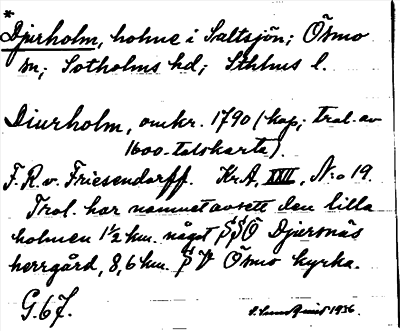 *
Djurholm, holme i Saltsjön; Ösmo
sn; Sotholms hd; Sthlms l.
Diurholm, omkr. 1790 (kop; trol. av
1600-talskarta)
F. R. v. Friesendorff. Kr.A, XXII, N:o 19.
Trol. har namnet avsett den lilla
holmen 1½ km. något S S Ö Djursnäs
herrgård, 8,6 km. S V Ösmo kyrka.
G. 67. S. Lundquist 1936.